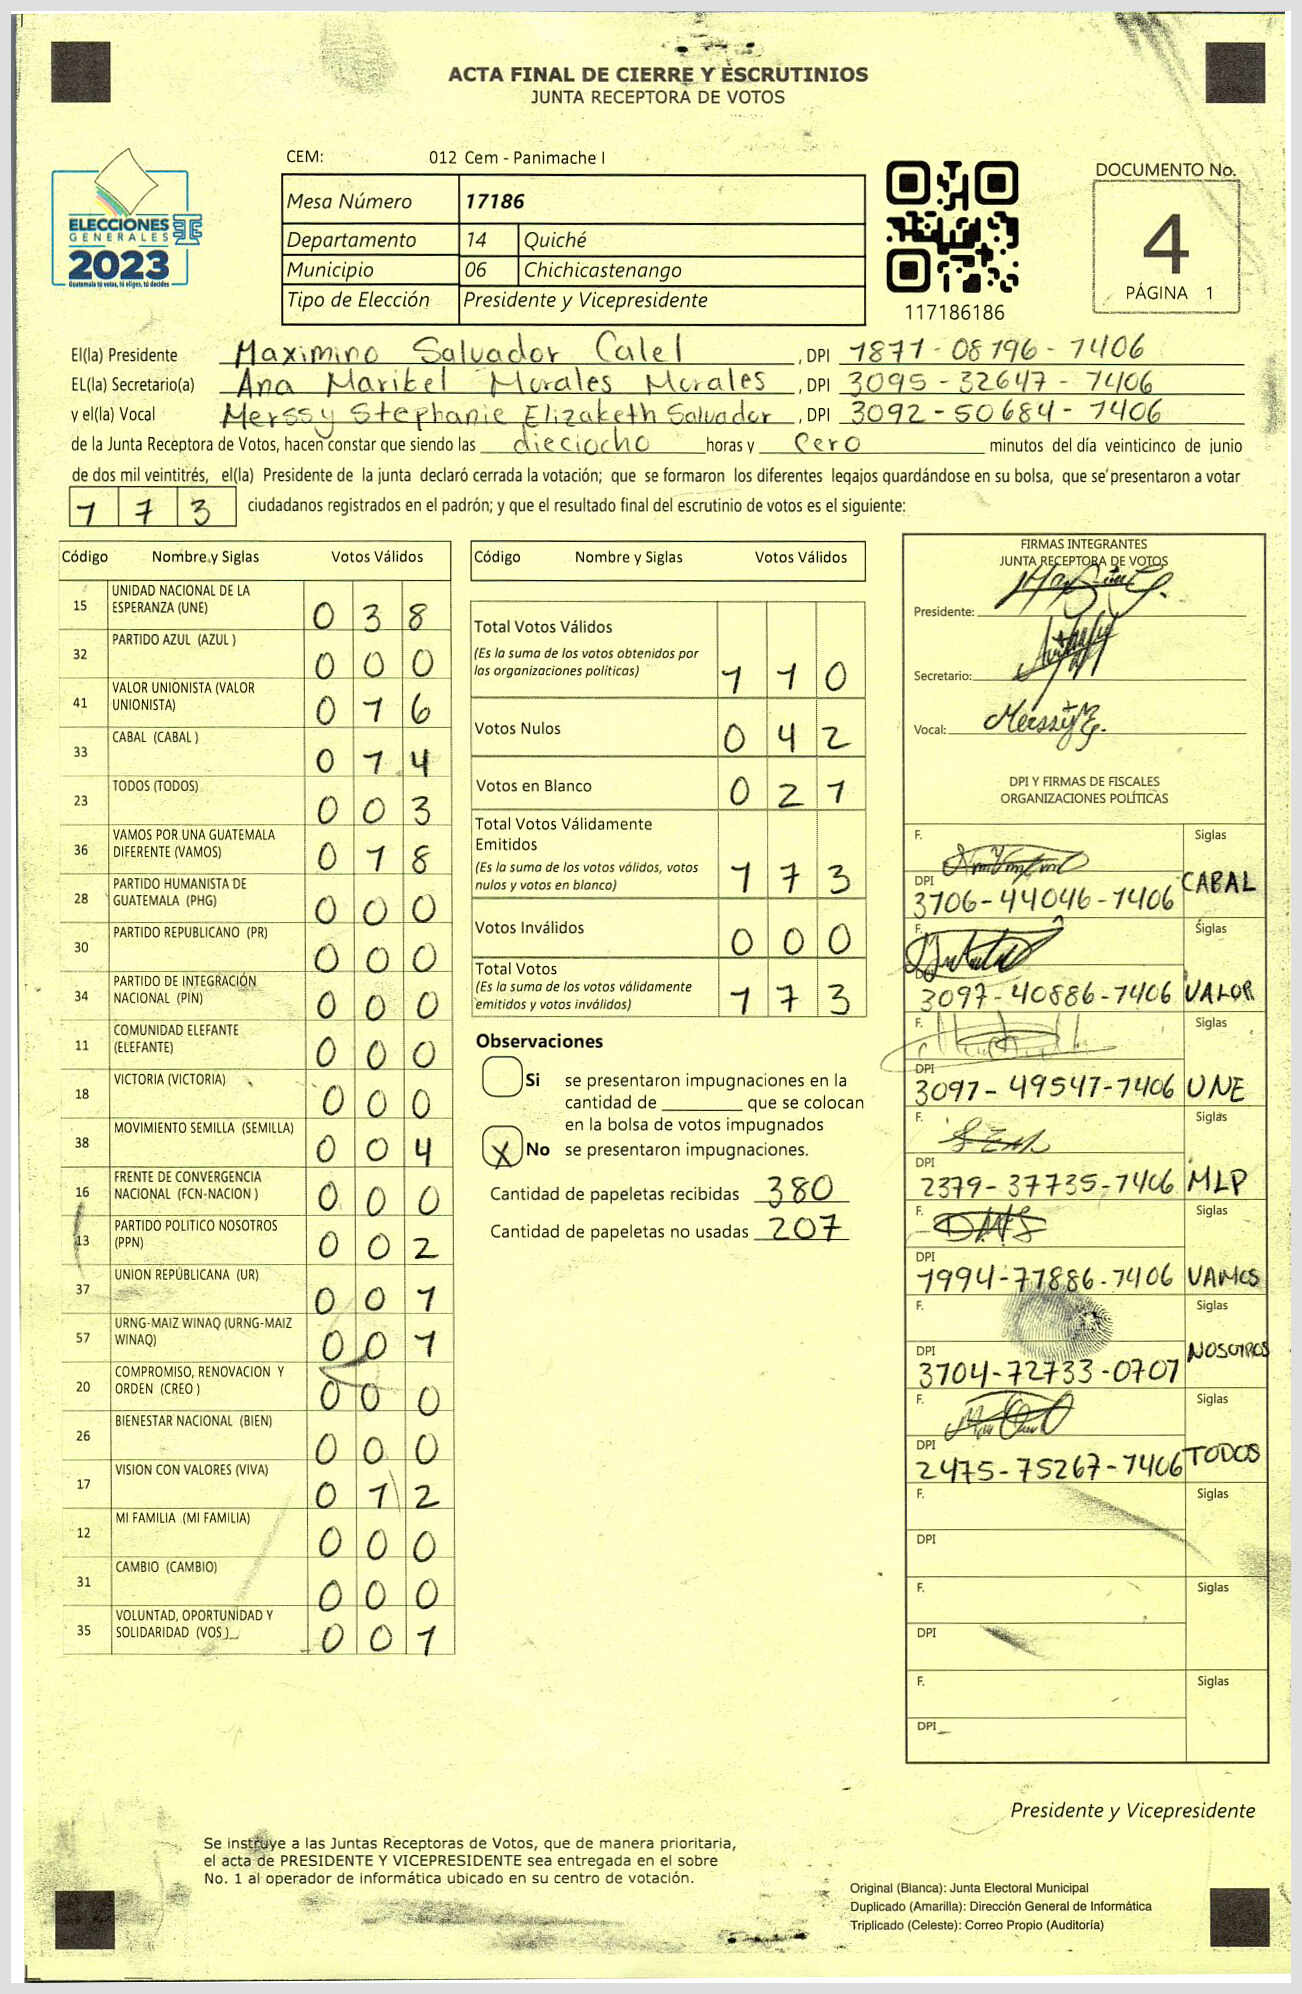 ACTA FINAL DE CIERRE Y ESCRUTINIOS
JUNTA RECEPTORA DE VOTOS
CEM: 012 Cem - Panimache I
ELECCIONES
GENERALES
2023
Guatemala tú votas, tú eliges, tú decides
Mesa Número 17186
Departamento 14 Quiché
Municipio 06 Chichicastenango
Tipo de Elección Presidente y Vicepresidente
117186186
DOCUMENTO No.
4
PÁGINA 1
El(la) Presidente Maximino Salvador Calel , DPI 1871-08196-1406
EL(la) Secretario(a) Ana Maribel Morales Morales , DPI 3095-32647-1406
y el(la) Vocal Merssy Stephanie Elizabeth Salvador , DPI 3092-50684-1406
de la Junta Receptora de Votos, hacen constar que siendo las dieciocho horas y cero minutos del día veinticinco de junio
de dos mil veintitrés, el(la) Presidente de la junta declaró cerrada la votación; que se formaron los diferentes legajos guardándose en su bolsa, que se presentaron a votar
173 ciudadanos registrados en el padrón; y que el resultado final del escrutinio de votos es el siguiente:
Código Nombre y Siglas Votos Válidos
15 UNIDAD NACIONAL DE LA ESPERANZA (UNE) 038
32 PARTIDO AZUL (AZUL ) 000
41 VALOR UNIONISTA (VALOR UNIONISTA) 016
33 CABAL (CABAL ) 014
23 TODOS (TODOS) 003
36 VAMOS POR UNA GUATEMALA DIFERENTE (VAMOS) 018
28 PARTIDO HUMANISTA DE GUATEMALA (PHG) 000
30 PARTIDO REPUBLICANO (PR) 000
34 PARTIDO DE INTEGRACIÓN NACIONAL (PIN) 000
11 COMUNIDAD ELEFANTE (ELEFANTE) 000
18 VICTORIA (VICTORIA) 000
38 MOVIMIENTO SEMILLA (SEMILLA) 004
16 FRENTE DE CONVERGENCIA NACIONAL (FCN-NACION ) 000
13 PARTIDO POLITICO NOSOTROS (PPN) 002
37 UNION REPUBLICANA (UR) 001
57 URNG-MAIZ WINAQ (URNG-MAIZ WINAQ) 001
20 COMPROMISO, RENOVACION Y ORDEN (CREO ) 000
26 BIENESTAR NACIONAL (BIEN) 000
17 VISION CON VALORES (VIVA) 012
12 MI FAMILIA (MI FAMILIA) 000
31 CAMBIO (CAMBIO) 000
35 VOLUNTAD, OPORTUNIDAD Y SOLIDARIDAD (VOS ) 001
Código Nombre y Siglas Votos Válidos
Total Votos Válidos
(Es la suma de los votos obtenidos por
las organizaciones políticas) 110
Votos Nulos 042
Votos en Blanco 021
Total Votos Válidamente
Emitidos
(Es la suma de los votos válidos, votos
nulos y votos en blanco) 173
Votos Inválidos 000
Total Votos
(Es la suma de los votos válidamente
emitidos y votos inválidos) 173
Observaciones
Si se presentaron impugnaciones en la
cantidad de ________ que se colocan
en la bolsa de votos impugnados
X No se presentaron impugnaciones.
Cantidad de papeletas recibidas 380
Cantidad de papeletas no usadas 207
FIRMAS INTEGRANTES
JUNTA RECEPTORA DE VOTOS
Presidente:
Secretario:
Vocal:
DPI Y FIRMAS DE FISCALES
ORGANIZACIONES POLÍTICAS
F. Siglas
DPI 3706-44046-1406 CABAL
F. Siglas
3097-40886-1406 VALOR
F. Siglas
DPI 3097-49547-1406 UNE
F. Siglas
DPI 2379-37735-1406 MLP
F. Siglas
DPI 1994-71886-1406 VAMOS
F. Siglas
DPI 3704-72733-0707 NOSOTROS
F. Siglas
DPI 2475-75267-1406 TODOS
F. Siglas
DPI
F. Siglas
DPI
F. Siglas
DPI
Presidente y Vicepresidente
Se instruye a las Juntas Receptoras de Votos, que de manera prioritaria,
el acta de PRESIDENTE Y VICEPRESIDENTE sea entregada en el sobre
No. 1 al operador de informática ubicado en su centro de votación.
Original (Blanca): Junta Electoral Municipal
Duplicado (Amarilla): Dirección General de Informática
Triplicado (Celeste): Correo Propio (Auditoría)